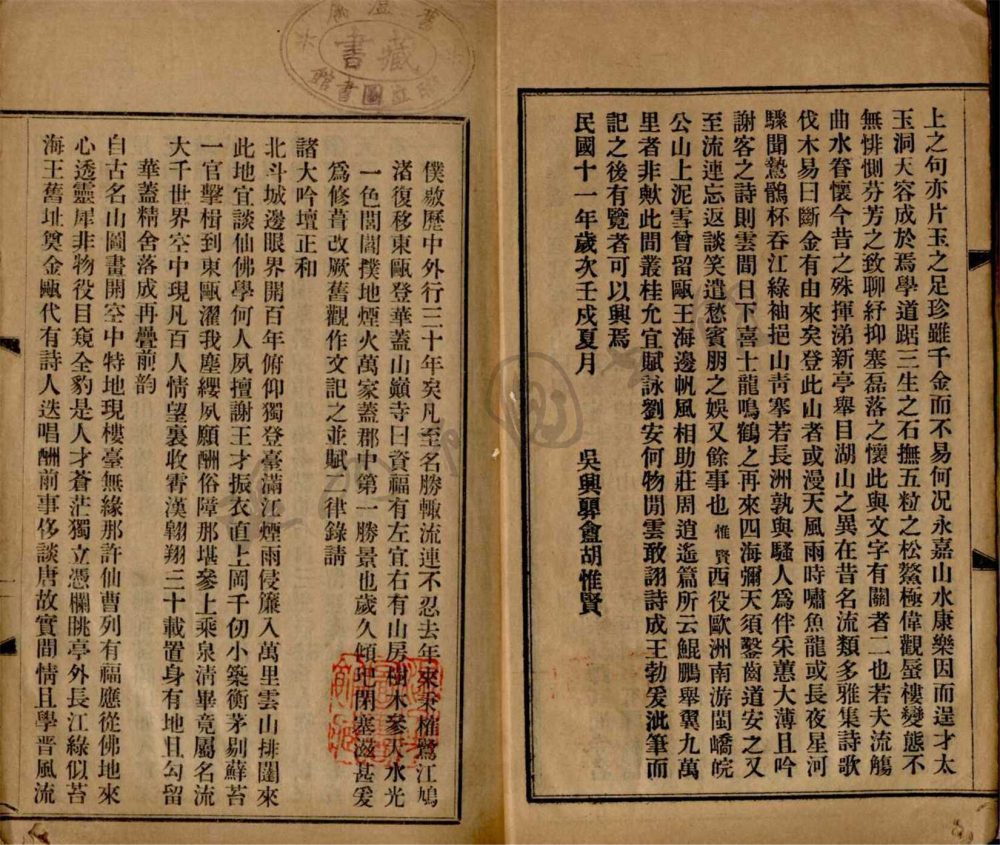 上之句亦片玉之足珍雖千金而不易何况永嘉山水康樂因而逞才太
玉洞天容成於焉學道踞三生之石撫五粒之松鰲極偉觀蜃樓變態不
無悱惻芬芳之致聊紓抑塞磊落之懷此與文字有關者二也若夫流觴
曲水眷懷今昔之殊揮涕新亭舉目湖山之異在昔名流類多雅集詩歌
伐木易曰斷金有由來矣登此山者或漫天風雨時嘯魚龍或長夜星河
驟聞鶩鶻杯吞江綠袖挹山靑塞若長洲孰與騷人爲伴采蕙大薄且吟
謝客之詩則雲間日下喜士龍鳴鶴之再來四海彌天須鑿齒道安之又
至流連忘返談笑遣愁賓朋之娛又餘事也惟賢西役歐洲南游閩嶠皖
公山上泥雪曾留甌王海邊帆風相助莊周逍遙篇所云鯤鵬舉翼九萬
里者非歟此間叢桂允宜賦詠劉安何物閒雲敢詡詩成王勃爰泚筆而
記之後有覽者可以興焉
民國十一年歲次壬戌夏月 吳興羼盦胡惟賢
僕敭歷中外行三十年矣凡至名勝輙流連不忍去年來奉榷鷺江鳩
渚復移東甌登華蓋山巓寺曰資福有左宜右有山房樹木參天水光
一色閭閻撲地煙火萬家蓋郡中第一勝景也歲久傾圯閉塞滋甚爰
爲修葺改厥舊觀作文記之並賦二律錄請
諸大吟壇正和
北斗城邊眼界開百年俯仰獨登臺滿江煙雨侵簾入萬里雲山排闥來
此地宜談仙佛學何人夙擅謝王才振衣直上岡千仞小築衡茅剔蘚苔
一官擊楫到東甌濯我塵纓夙願酬俗障那堪參上乘泉淸畢竟屬名流
大千世界空中現凡百人情望裏收霄漢翱翔三十載置身有地且勾留
華蓋精舍落成再疊前韵
自古名山圖畫開空中特地現樓臺無緣那許仙曹列有福應從佛地來
心透靈犀非物役目窺全豹是人才蒼茫獨立憑欄眺亭外長江綠似苔
海王舊址奠金甌代有詩人迭唱酬前事侈談唐故實閒情且學晉風流
藏書
圖書館